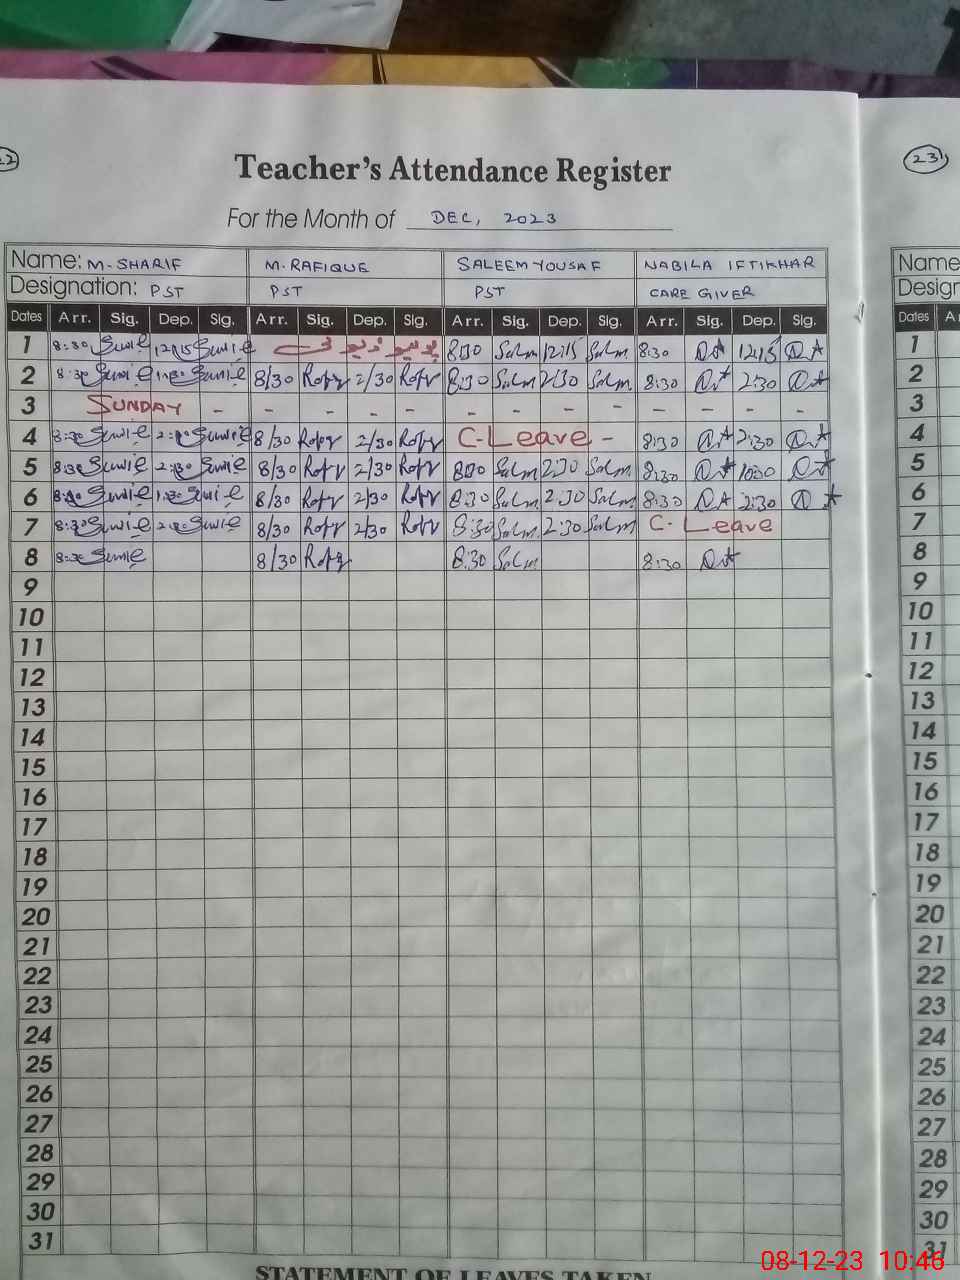 22
23
Teacher's Attendance Register
For the Month of DEC, 2023
Name: M-SHARIF M. RAFIQUE SALEEM YOUSAF NABILA IFTIKHAR Name
Designation: PST PST PST CARE GIVER Desigr
Dates Arr. Sig. Dep. Sig. Arr. Sig. Dep. Sig. Arr. Sig. Dep. Sig. Arr. Sig. Dep. Sig. Dates A
1 8:30 12:15 پولیو ڈیوٹی 8:30 Salm 12:15 Salm 8:30 12:15 1
2 8:30 8/30 2/30 8:30 Salm 2:30 Salm 8:30 2:30 2
3 SUNDAY - - - - - - - - - - - - - 3
4 8:30 8/30 2/30 C-Leave - 8:30 2:30 4
5 8:30 2:30 8/30 2/30 8:30 Salm 2:30 Salm 8:30 5
6 8/30 2/30 8:30 Salm 2:30 Salm 8:30 2:30 6
7 8:30 8/30 2/30 8:30 Salm 2:30 Salm C. Leave 7
8 8:30 8/30 8:30 Salm 8:30 8
9 9
10 10
11 11
12 12
13 13
14 14
15 15
16 16
17 17
18 18
19 19
20 20
21 21
22 22
23 23
24 24
25 25
26 26
27 27
28 28
29 29
30 30
31 31
STATEMENT OF LEAVES TAKEN
08-12-23 10:46